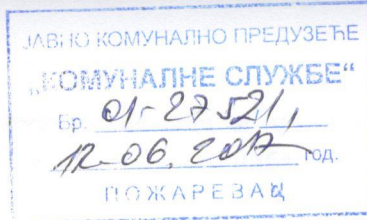 ЈАВНО КОМУНАЛНО ПРЕДУЗЕЋЕ
„КОМУНАЛНЕ СЛУЖБЕ“
Бр. 01-2752/1,
12-06. 2017 год.
ПОЖАРЕВАЦ